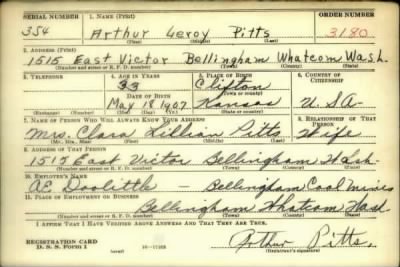 SERIAL NUMBER 1. NAME (Print) ORDER NUMBER
354 Arthur Leroy Pitts 3180
2. ADDRESS (Print)
1515 East Victor Bellingham Whatcom Wash.
(Number and street or R. F. D. number) (Town) (County) (State)
3. TELEPHONE 4. AGE IN YEARS 5. PLACE OF BIRTH 6. COUNTRY OF CITIZENSHIP
33 Clifton
DATE OF BIRTH
May 18 1907 Kansas U.S.A.
(Mo.) (Day) (Yr.) (State or country)
7. NAME OF PERSON WHO WILL ALWAYS KNOW YOUR ADDRESS 8. RELATIONSHIP OF THAT PERSON
Mrs. Clara Lillian Pitts Wife
(Mr., Mrs., Miss) (First) (Middle) (Last)
9. ADDRESS OF THAT PERSON
1515 East Victor Bellingham Wash.
(Number and street or R. F. D. number) (Town) (County) (State)
10. EMPLOYER'S NAME
A.E. Doolittle — Bellingham Coal Mines
11. PLACE OF EMPLOYMENT OR BUSINESS
Bellingham Whatcom Wash
(Number and street or R. F. D. number) (Town) (County) (State)
I AFFIRM THAT I HAVE VERIFIED ABOVE ANSWERS AND THAT THEY ARE TRUE.
REGISTRATION CARD
D. S. S. Form 1 (over) Arthur Pitts.
(Registrant's signature)